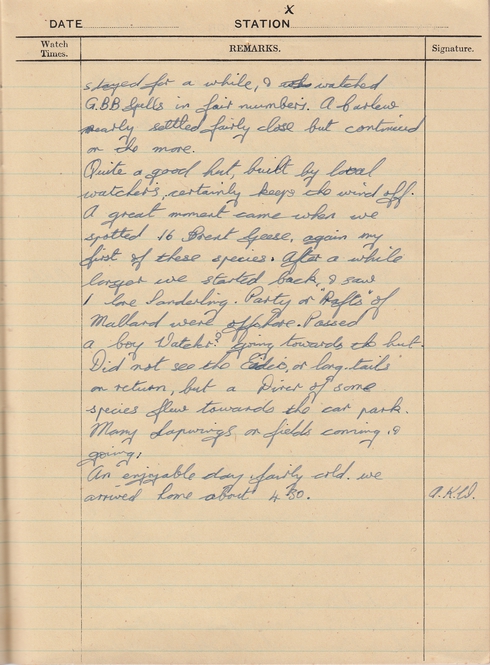 X
DATE STATION
Watch Times. REMARKS. Signature.
stayed for a while, & watched
G.BB Gulls in fair numbers. A Curlew
nearly settled fairly close but continued
on the more.
Quite a good hut, built by local
watchers, certainly keeps the wind off.
A great moment came when we
spotted 16 Brent Geese, again my
first of these species. After a while
longer we started back, & saw
1 lone Sanderling. Party or "Rafts" of
Mallard were offshore. Passed
a boy Watcher? going towards the hut.
Did not see the Eider, or long-tails
on return, but a Diver of some
species flew towards the car park.
Many Lapwings on fields coming &
going.
An enjoyable day, fairly cold. we
arrived home about 4.30.
A.K.W.